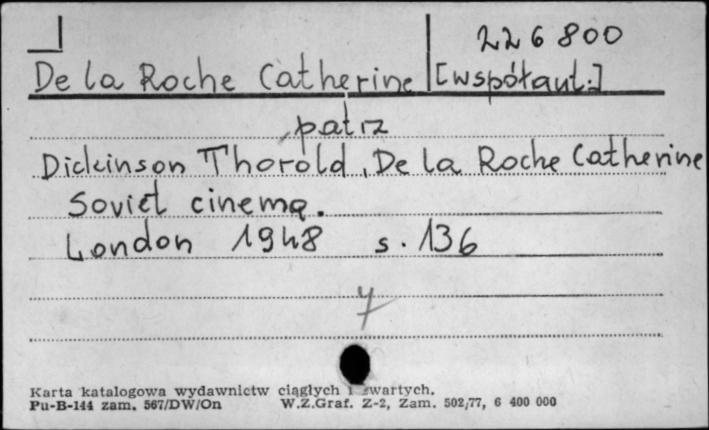 226800
De la Roche Catherine [współaut.]
patrz
Dickinson Thorold, De la Roche Catherine
Soviet cinema.
London 1948 s. 136
Karta katalogowa wydawnictw ciągłych i zwartych.
Pu-B-144 zam. 567/DW/On W.Z.Graf. Z-2, Zam. 502/77, 6 400 000